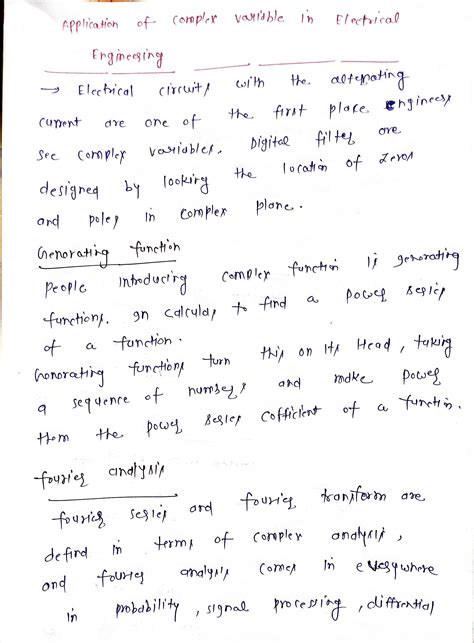 Application of complex variable in Electrical
Engineering
→ Electrical circuits with the alternating
current are one of the first place engineers
see complex variables. Digital filter are
designed by looking the location of zeros
and poles in complex plane.
Genorating function
people introducing complex function is generating
functions. In calculas to find a power series
of a function.
Genorating functions turn this on its Head, taking
a sequence of numbers and make power
them the power series cofficient of a function.
fourier analysis
fourier series and fourier transform are
defind in terms of complex analysis,
and fourier analysis comes in everywhere
in probability, signal processing, diffrential